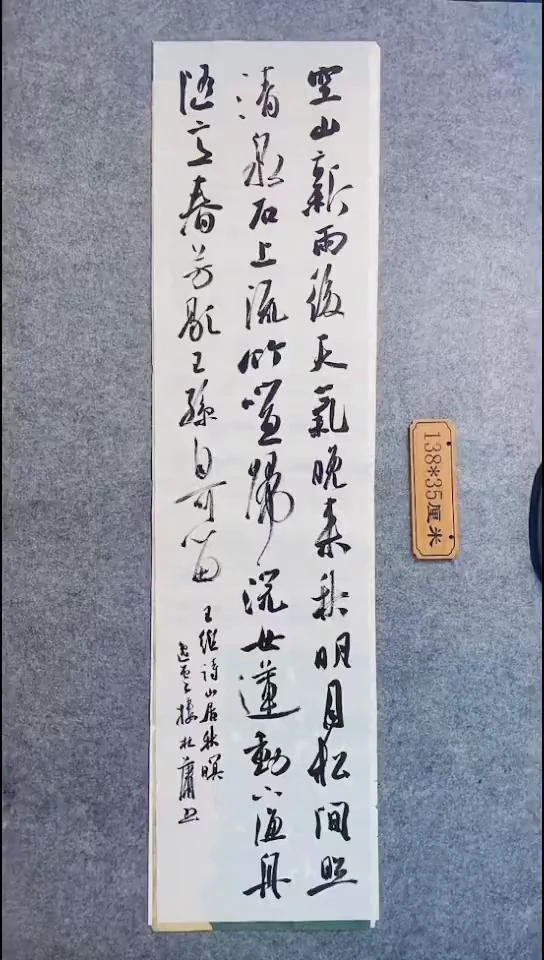 空山新雨後天氣晚来秋明月松間照
清泉石上流竹喧歸浣女蓮動下漁舟
随意春芳歇王孫自可留
王維詩山居秋暝
樓杜书
138*35厘米